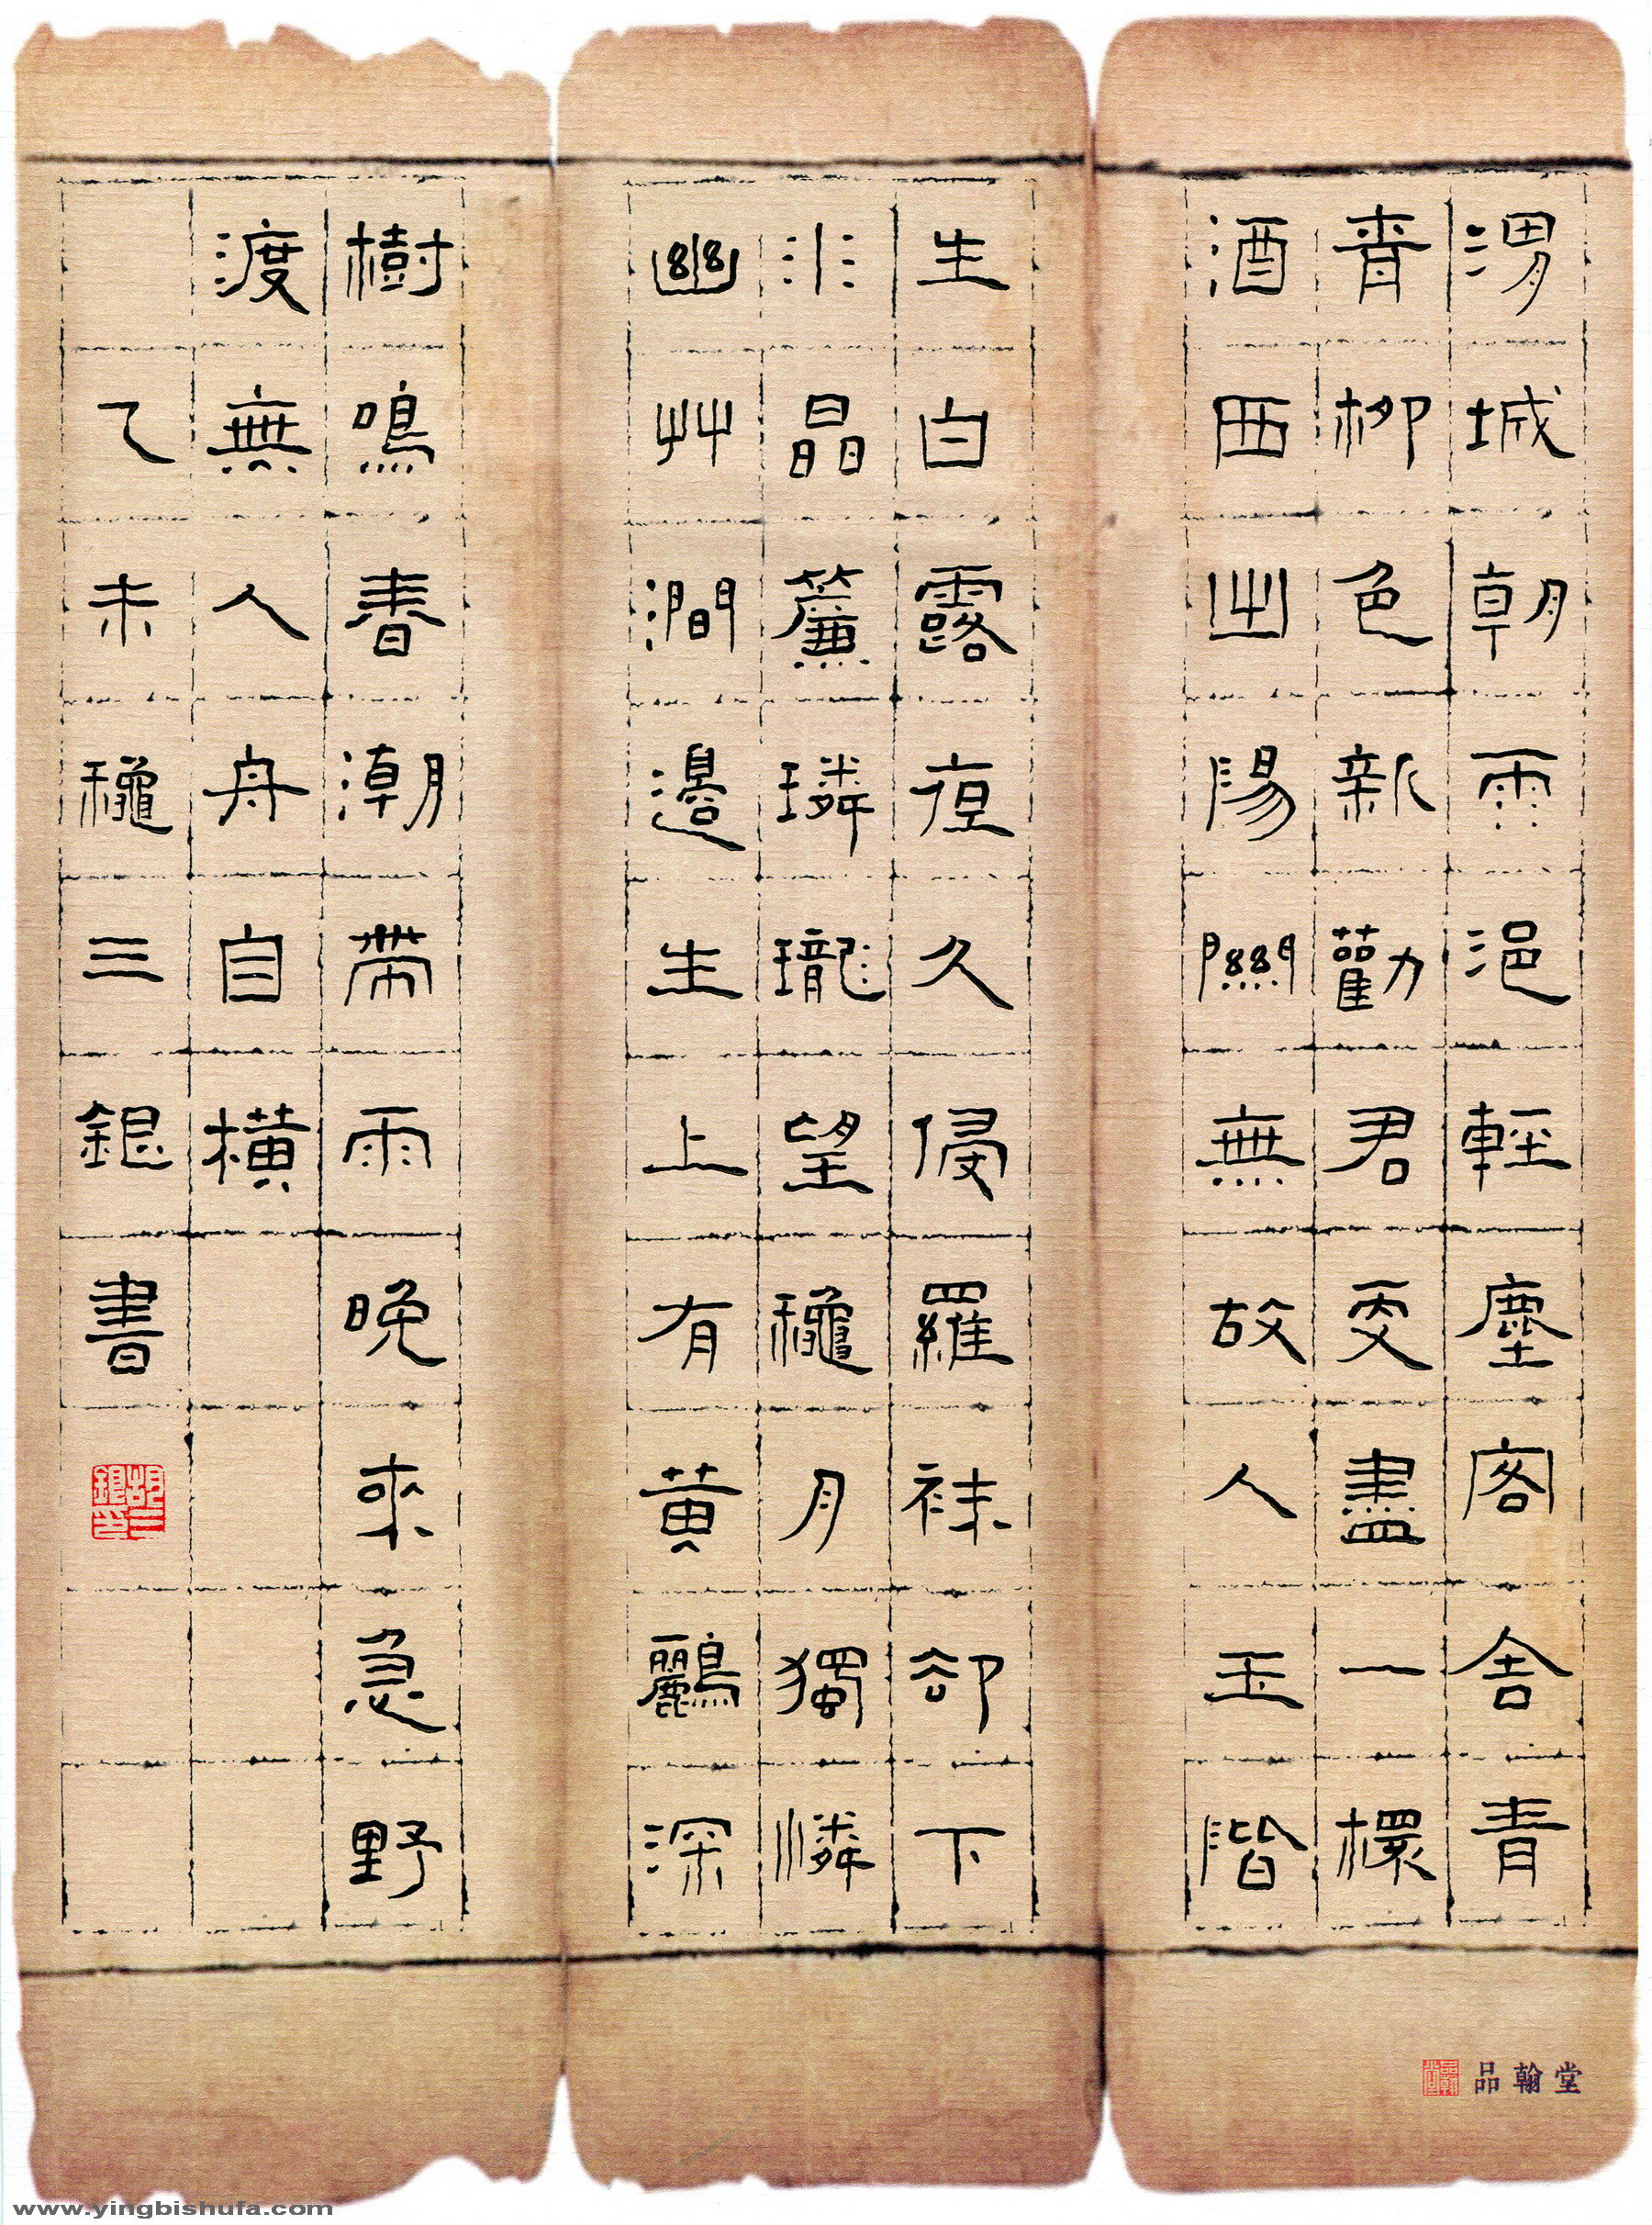 渭城朝雨浥輕塵客舍青
青柳色新勸君更盡一杯
酒西出陽關無故人玉階
生白露夜久侵羅袜卻下
水晶簾璘瓏望龝月獨憐
幽艸澗邊生上有黃鸝深
樹鳴春潮帶雨晚來急野
渡無人舟自橫
乙未龝三銀書
品翰堂
www.yingbishufa.com